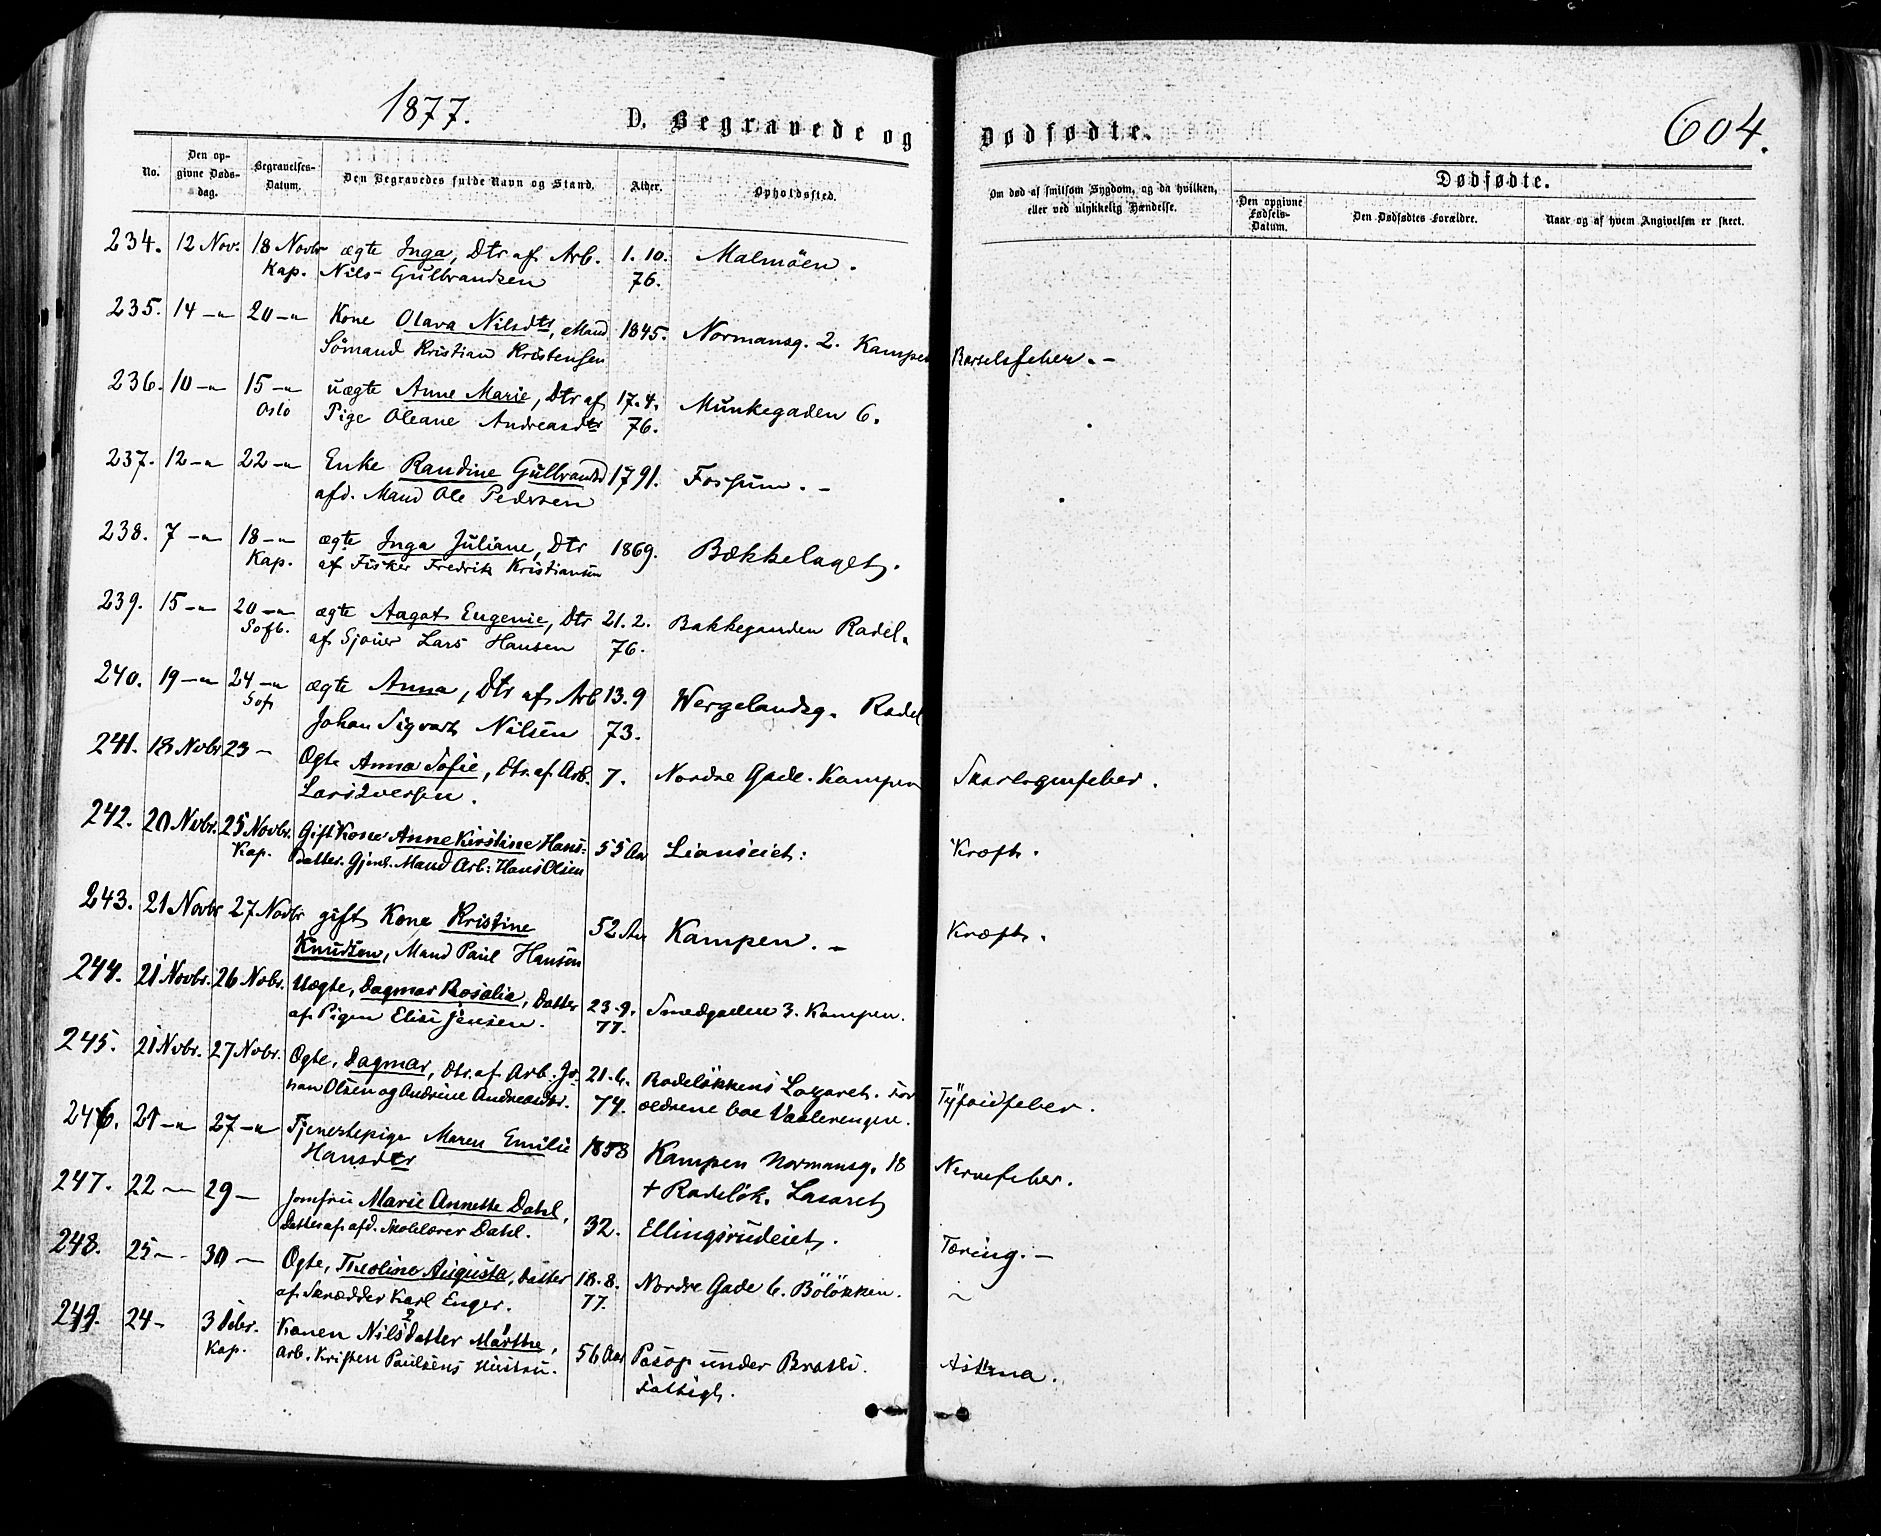 1877.
D. Begravede og Dødfødte.
604.
No.
Den opgivne Dødsdag.
Begravelses-Datum.
Den Begravedes fulde Navn og Stand.
Alder.
Opholdssted.
Om død af smitsom Sygdom, og da hvilken, eller ved ulykkelig Hændelse.
Dødfødte.
Den opgivne Fødsels-Datum.
Den Dødfødtes Forældre.
Naar og af hvem Angivelsen er skeet.
234. 12 Nov. 18 Novbr ægte Inga, Dtr af Arb. 1. 10. Malmøen.
Kap. Nils Gulbrandsen 76.
235. 14 -"- 20 -"- Kone Olava Nilsdtr, Mand 1845. Normansg. 2. Kampen Barselsfeber. -
Sømand Kristian Kristensen
236. 10 -"- 15 -"- uægte Anne Marie, Dtr af 17. 4. Munkegaden 6.
Oslo Pige Oleane Andreasdtr 76.
237. 12 -"- 22 -"- Enke Randine Gulbrandsd 1791. Fossum. -
afd. Mand Ole Pedersen
238. 7 -"- 18 -"- ægte Inga Juliane, Dtr 1869. Bækkelaget.
Kap. af Fisker Fredrik Kristiansen
239. 15 -"- 20 -"- ægte Aagot Eugenie, Dtr 21. 2. Bakkegaden Rodel.
Sofb. af Sjouer Lars Hansen 76.
240. 19 -"- 24 -"- ægte Anna, Dtr af Arb 13. 9 Wergelandsg. Rodel
Sof. Johan Sigvart Nilsen 73.
241. 18 Novbr 23 - Ægte Anna Sofie, Dtr. af Arb. 7. Nordre Gade. Kampen Skarlagensfeber.
Lars Iversen.
242. 20 Novbr. 25 Novbr. Gift Kone Anne Kirstine Hans- 55 Aar Lianseiet: Kræft.
Kap. datter. Gjenl. Mand Arb: Hans Olsen
243. 21 Novbr 27 Novbr gift Kone Kristine 52 Aar Kampen. - Kræft.
Knudsen, Mand Paul Hansen
244. 21 Novbr. 26 Nobr. Uægte, Dagmar Rosalia, Datter 23. 9. Smedgaden 3. Kampen.
af Pigen Elise Jensen. 77.
245. 21 Nvbr. 27 Nvbr. Ægte, Dagmar, Dtr. af Arb. Jo- 21. 6. Rodeløkkens Lazaret. For Tyfoidfeber.
han Olsen og Andrine Andreasdtr. 74. ældrene boe Vaalerengen.
246. 21 -"- 27 -"- Tjenestepige Maren Emilie 1858 Kampen Normansg. 18 Nervefeber.
Hansdtr + Rodeløk. Lasaret
247. 22 - 29 - Jomfru Marie Annette Dahl, 32. Ellingsrudeiet. Tæring. -
Datter af afd. Skolelærer Dahl.
248. 25 - 30 - Ægte, Theoline Augusta, Datter 18. 8. Nordre Gade 6. Bøløkken. ~
af Skrædder Karl Enger. 77.
249. 24 - 3 Debr. Konen Nilsdatter Marthe, 56 Aar Posop under Brotsk. Astma.
Kap. Arb. Kristen Paulsens Hustru. Fattigk.